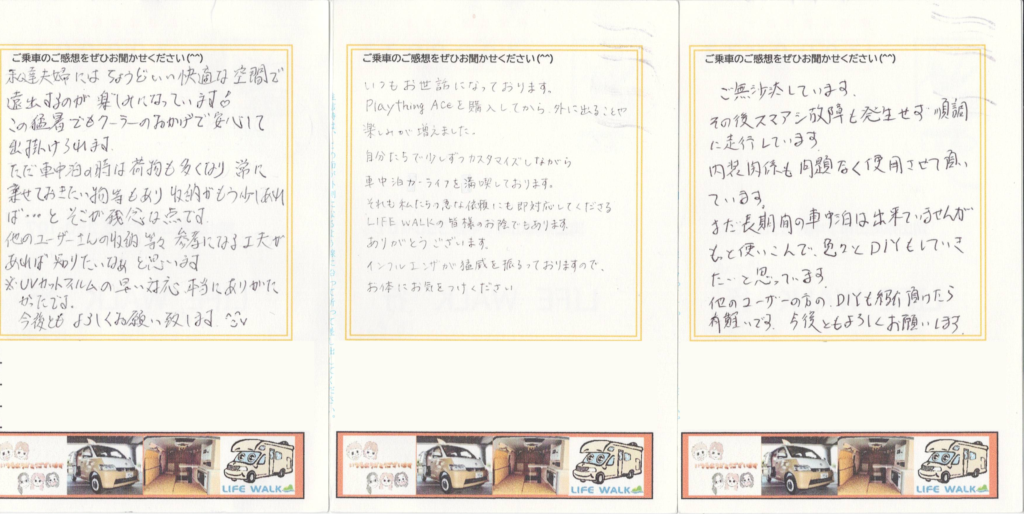 ご乗車のご感想をぜひお聞かせください(^^)
私達夫婦にはちょうどいい快適な空間で
遠出するのが楽しみになっています
この猛暑でもクーラーのおかげで安心して
出掛けられます。
ただ車中泊の時は荷物も多くなり 常に
乗せておきたい物等もあり 収納がもう少しあれ
ば…と そこが残念な点です
他のユーザーさんの収納等々 参考になる工夫が
あれば 知りたいなぁと思います
※UVカットフィルムの早い対応 本当にありがた
かったです。
今後とも よろしくお願い致します。
LIFE WALK
ご乗車のご感想をぜひお聞かせください(^^)
いつもお世話になっております。
Plaything Aceを購入してから、外に出ることや
楽しみが増えました。
自分たちで少しずつカスタマイズしながら
車中泊カーライフを満喫しております。
それも私たちの急な依頼にも即対応してくださる
LIFE WALKの皆様のお陰でもあります。
ありがとうございます。
インフルエンザが猛威を振るっておりますので、
お体にお気をつけください
LIFE WALK
ご乗車のご感想をぜひお聞かせください(^^)
ご無沙汰しています。
その後スマアシ故障も発生せず 順調
に走行しています
内装関係も問題なく使用させて頂い
ています。
まだ長期間の車中泊は出来ていませんが
もっと使いこんで、色々とDIYもしていき
たい…と思っています。
他のユーザーの方の、DIYも紹介頂けたら
有難いです。今後ともよろしくお願いします。
LIFE WALK